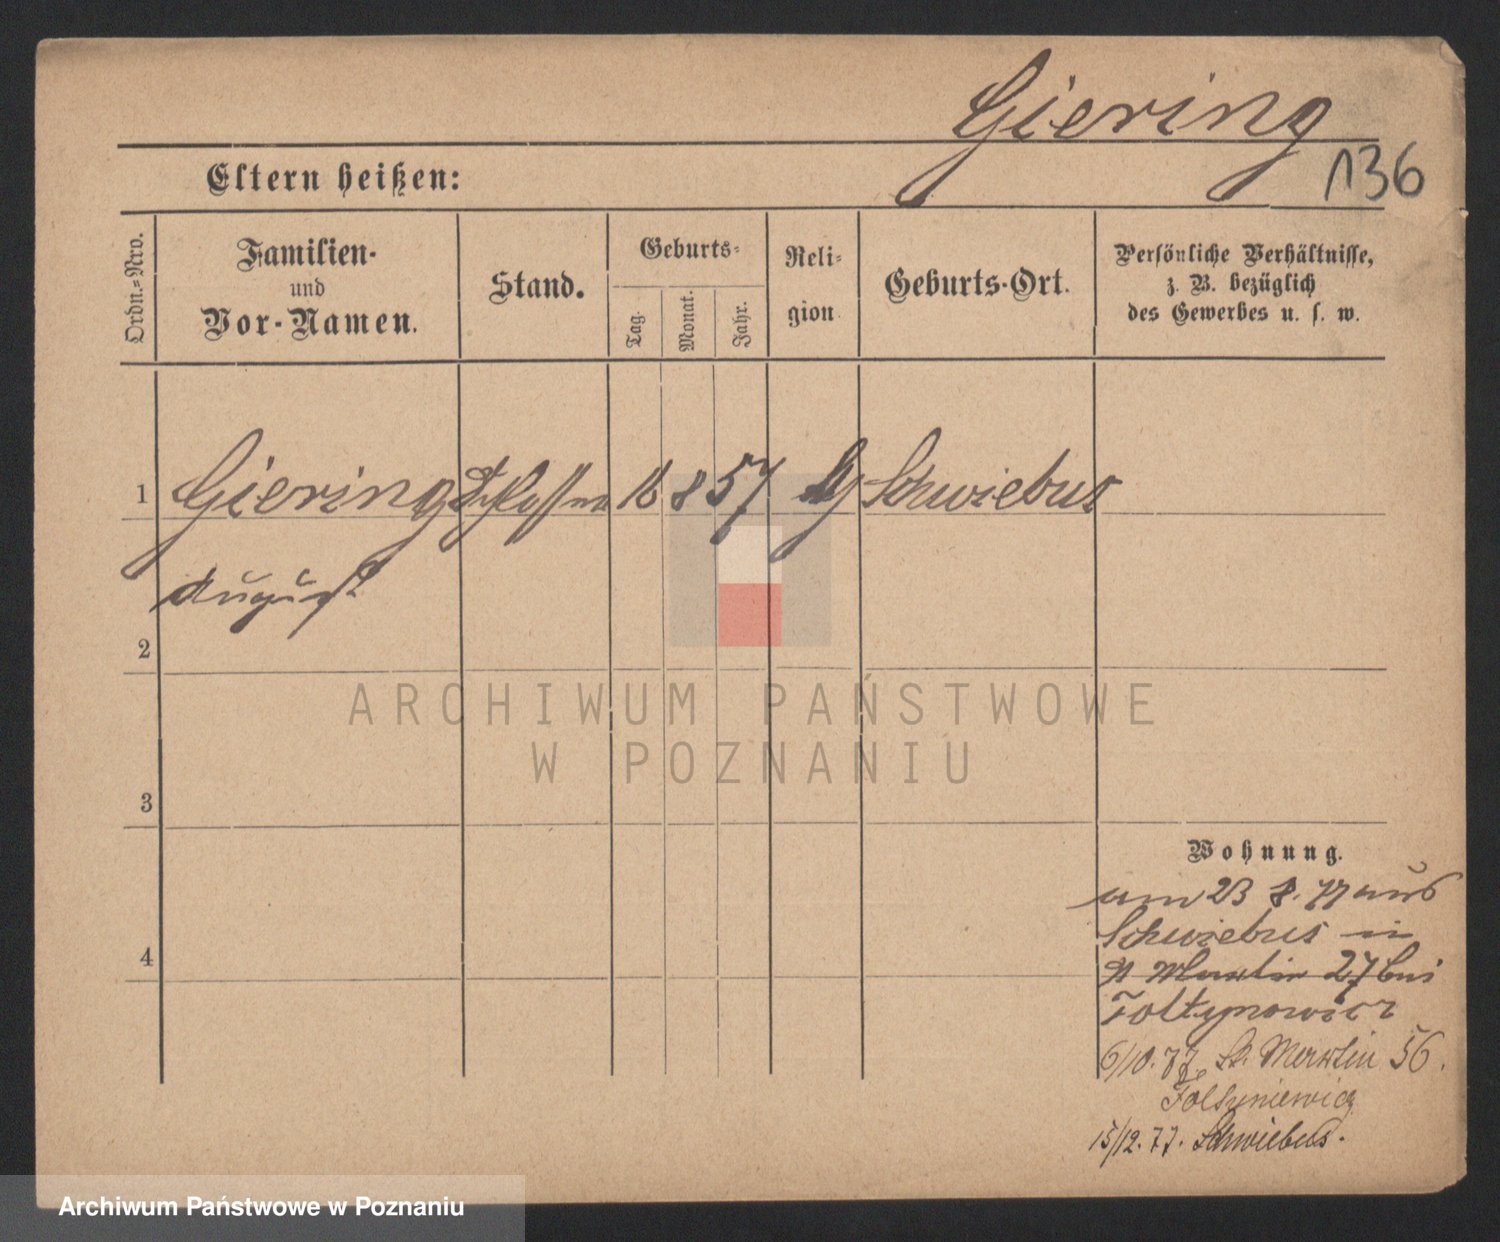 Giering
136
Eltern heißen:
Ordn.-Nro.
Familien-
und
Vor-Namen.
Stand.
Geburts-
Tag.
Monat.
Jahr.
Reli-
gion
Geburts-Ort.
Persönliche Verhältnisse,
z. B. bezüglich
des Gewerbes u. s. w.
1 Giering Schlosser 8 57 Schwiebus
August
2
3
4
Wohnung.
am 23 8. 77 aus
Schwiebus in
St Martin 27 bei
Toltynowicz
6/10. 77. St. Martin 56.
15/12. 77. Schwiebus.
ARCHIWUM PAŃSTWOWE
W POZNANIU
Archiwum Państwowe w Poznaniu